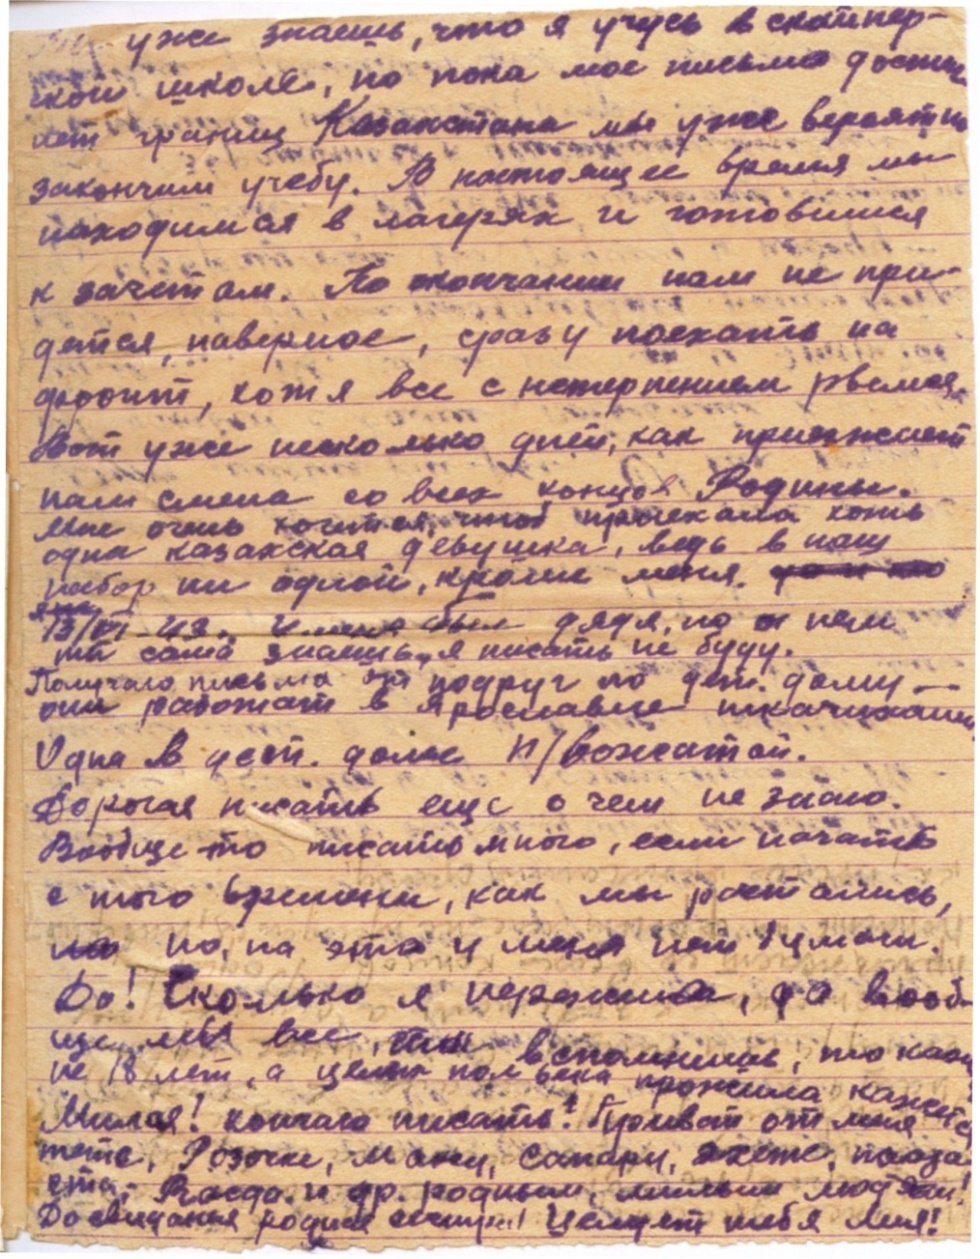 уже знаешь, что я учусь в снайпер-
ской школе, но пока мое письмо достиг
нет границ Казахстана мы уже вероятно
закончим учебу. В настоящее время мы
находимся в лагерях и готовимся
к зачетам. По окончании нам не при-
дется, наверное, сразу поехать на
фронт, хотя все с нетерпением рвемся.
Вот уже несколько дней, как приезжает
нам смена со всех концов Родины.
Мне очень хочется, чтоб приехала хоть
одна казахская девушка, ведь в наш
набор ни одной, кроме меня.
У меня был дядя, но о нем
ты сама знаешь, я писать не буду.
Получаю письма от подруг по дет. дому —
они работают в Ярославле ткачихами
Одна в дет. доме п/вожатой.
Дорогая писать еще о чем не знаю.
Вообще-то писать много, если начать
с того времени, как мы растались,
но, на это у меня нет бумаги.
Да! Сколько я пережила, да вооб-
ще мы все, вспомнишь, то каж
не 18 лет, а целых пол века прожила кажется
Милая! кончаю писать! Привет от меня
тете, Розочке, Сапару,
и др. родным, милым людям!
До свидания родная Целует тебя Лия!